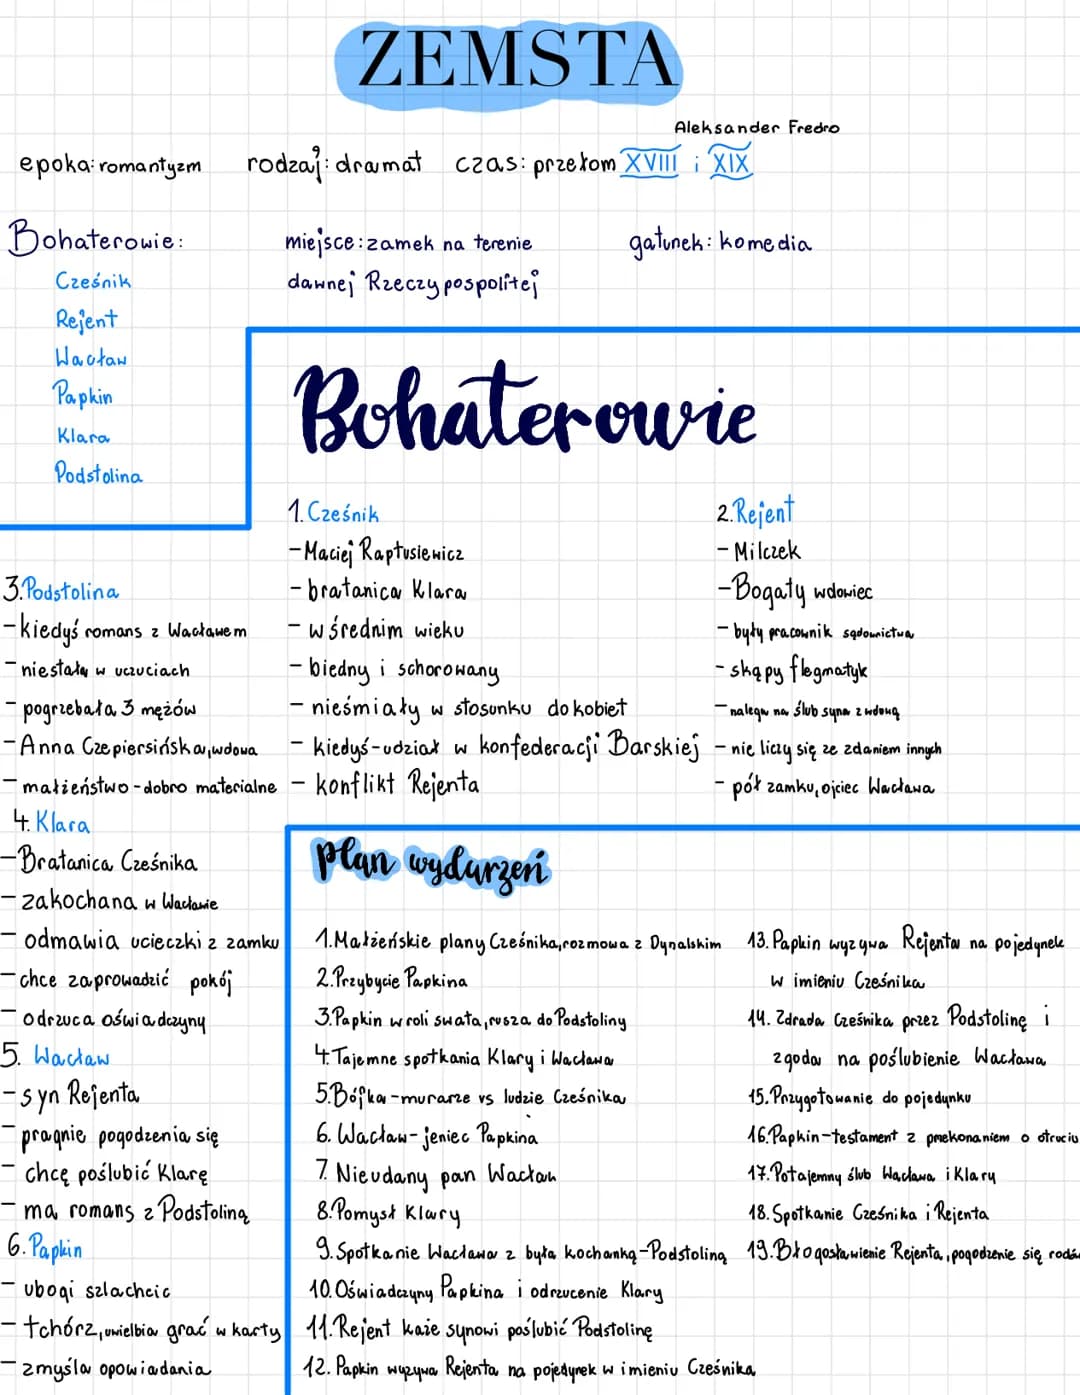 ZEMSTA
Aleksander Fredro
epoka: romantyzm rodzaj: dramat czas: przełom XVIII i XIX
Bohaterowie:
Cześnik
Rejent
Wacław
Papkin
Klara
Podstolina
miejsce: zamek na terenie
dawnej Rzeczypospolitej
gatunek: komedia
Bohaterowie
1. Cześnik
- Maciej Raptusiewicz
- bratanica Klara
- w średnim wieku
- biedny i schorowany
- nieśmiały w stosunku do kobiet
- kiedyś - udział w konfederacji Barskiej
- konflikt Rejenta
2. Rejent
- Milczek
- Bogaty wdowiec
- były pracownik sądownictwa
- skąpy flegmatyk
- nalega na ślub syna z wdową
- nie liczy się ze zdaniem innych
- pół zamku, ojciec Wacława
3. Podstolina
- kiedyś romans z Wacławem
- niestała w uczuciach
- pogrzebała 3 mężów
- Anna Czepiersińska, wdowa
- małżeństwo - dobro materialne
4. Klara
- Bratanica Cześnika
- zakochana w Wacławie
- odmawia ucieczki z zamku
- chce zaprowadzić pokój
- odrzuca oświadczyny
5. Wacław
- syn Rejenta
- pragnie pogodzenia się
- chcę poślubić Klarę
- ma romans z Podstoliną
6. Papkin
- ubogi szlachcic
- tchórz, uwielbia grać w karty
- zmyśla opowiadania
plan wydarzeń
1. Małżeńskie plany Cześnika, rozmowa z Dynalskim
2. Przybycie Papkina
3. Papkin w roli swata, rusza do Podstoliny
4. Tajemne spotkania Klary i Wacława
5. Bójka - murarze vs ludzie Cześnika
6. Wacław - jeniec Papkina
7. Nieudany pan Wacław
8. Pomysł Klary
9. Spotkanie Wacława z była kochanką - Podstoliną
10. Oświadczyny Papkina i odrzucenie Klary
11. Rejent każe synowi poślubić Podstolinę
12. Papkin wyzywa Rejenta na pojedynek w imieniu Cześnika
13. Papkin wyzywa Rejenta na pojedynek
w imieniu Cześnika
14. Zdrada Cześnika przez Podstolinę i
zgoda na poślubienie Wacława
15. Przygotowanie do pojedynku
16. Papkin - testament z przekonaniem o otruciu
17. Potajemny ślub Wacława i Klary
18. Spotkanie Cześnika i Rejenta
19. Błogosławienie Rejenta, pogodzenie się